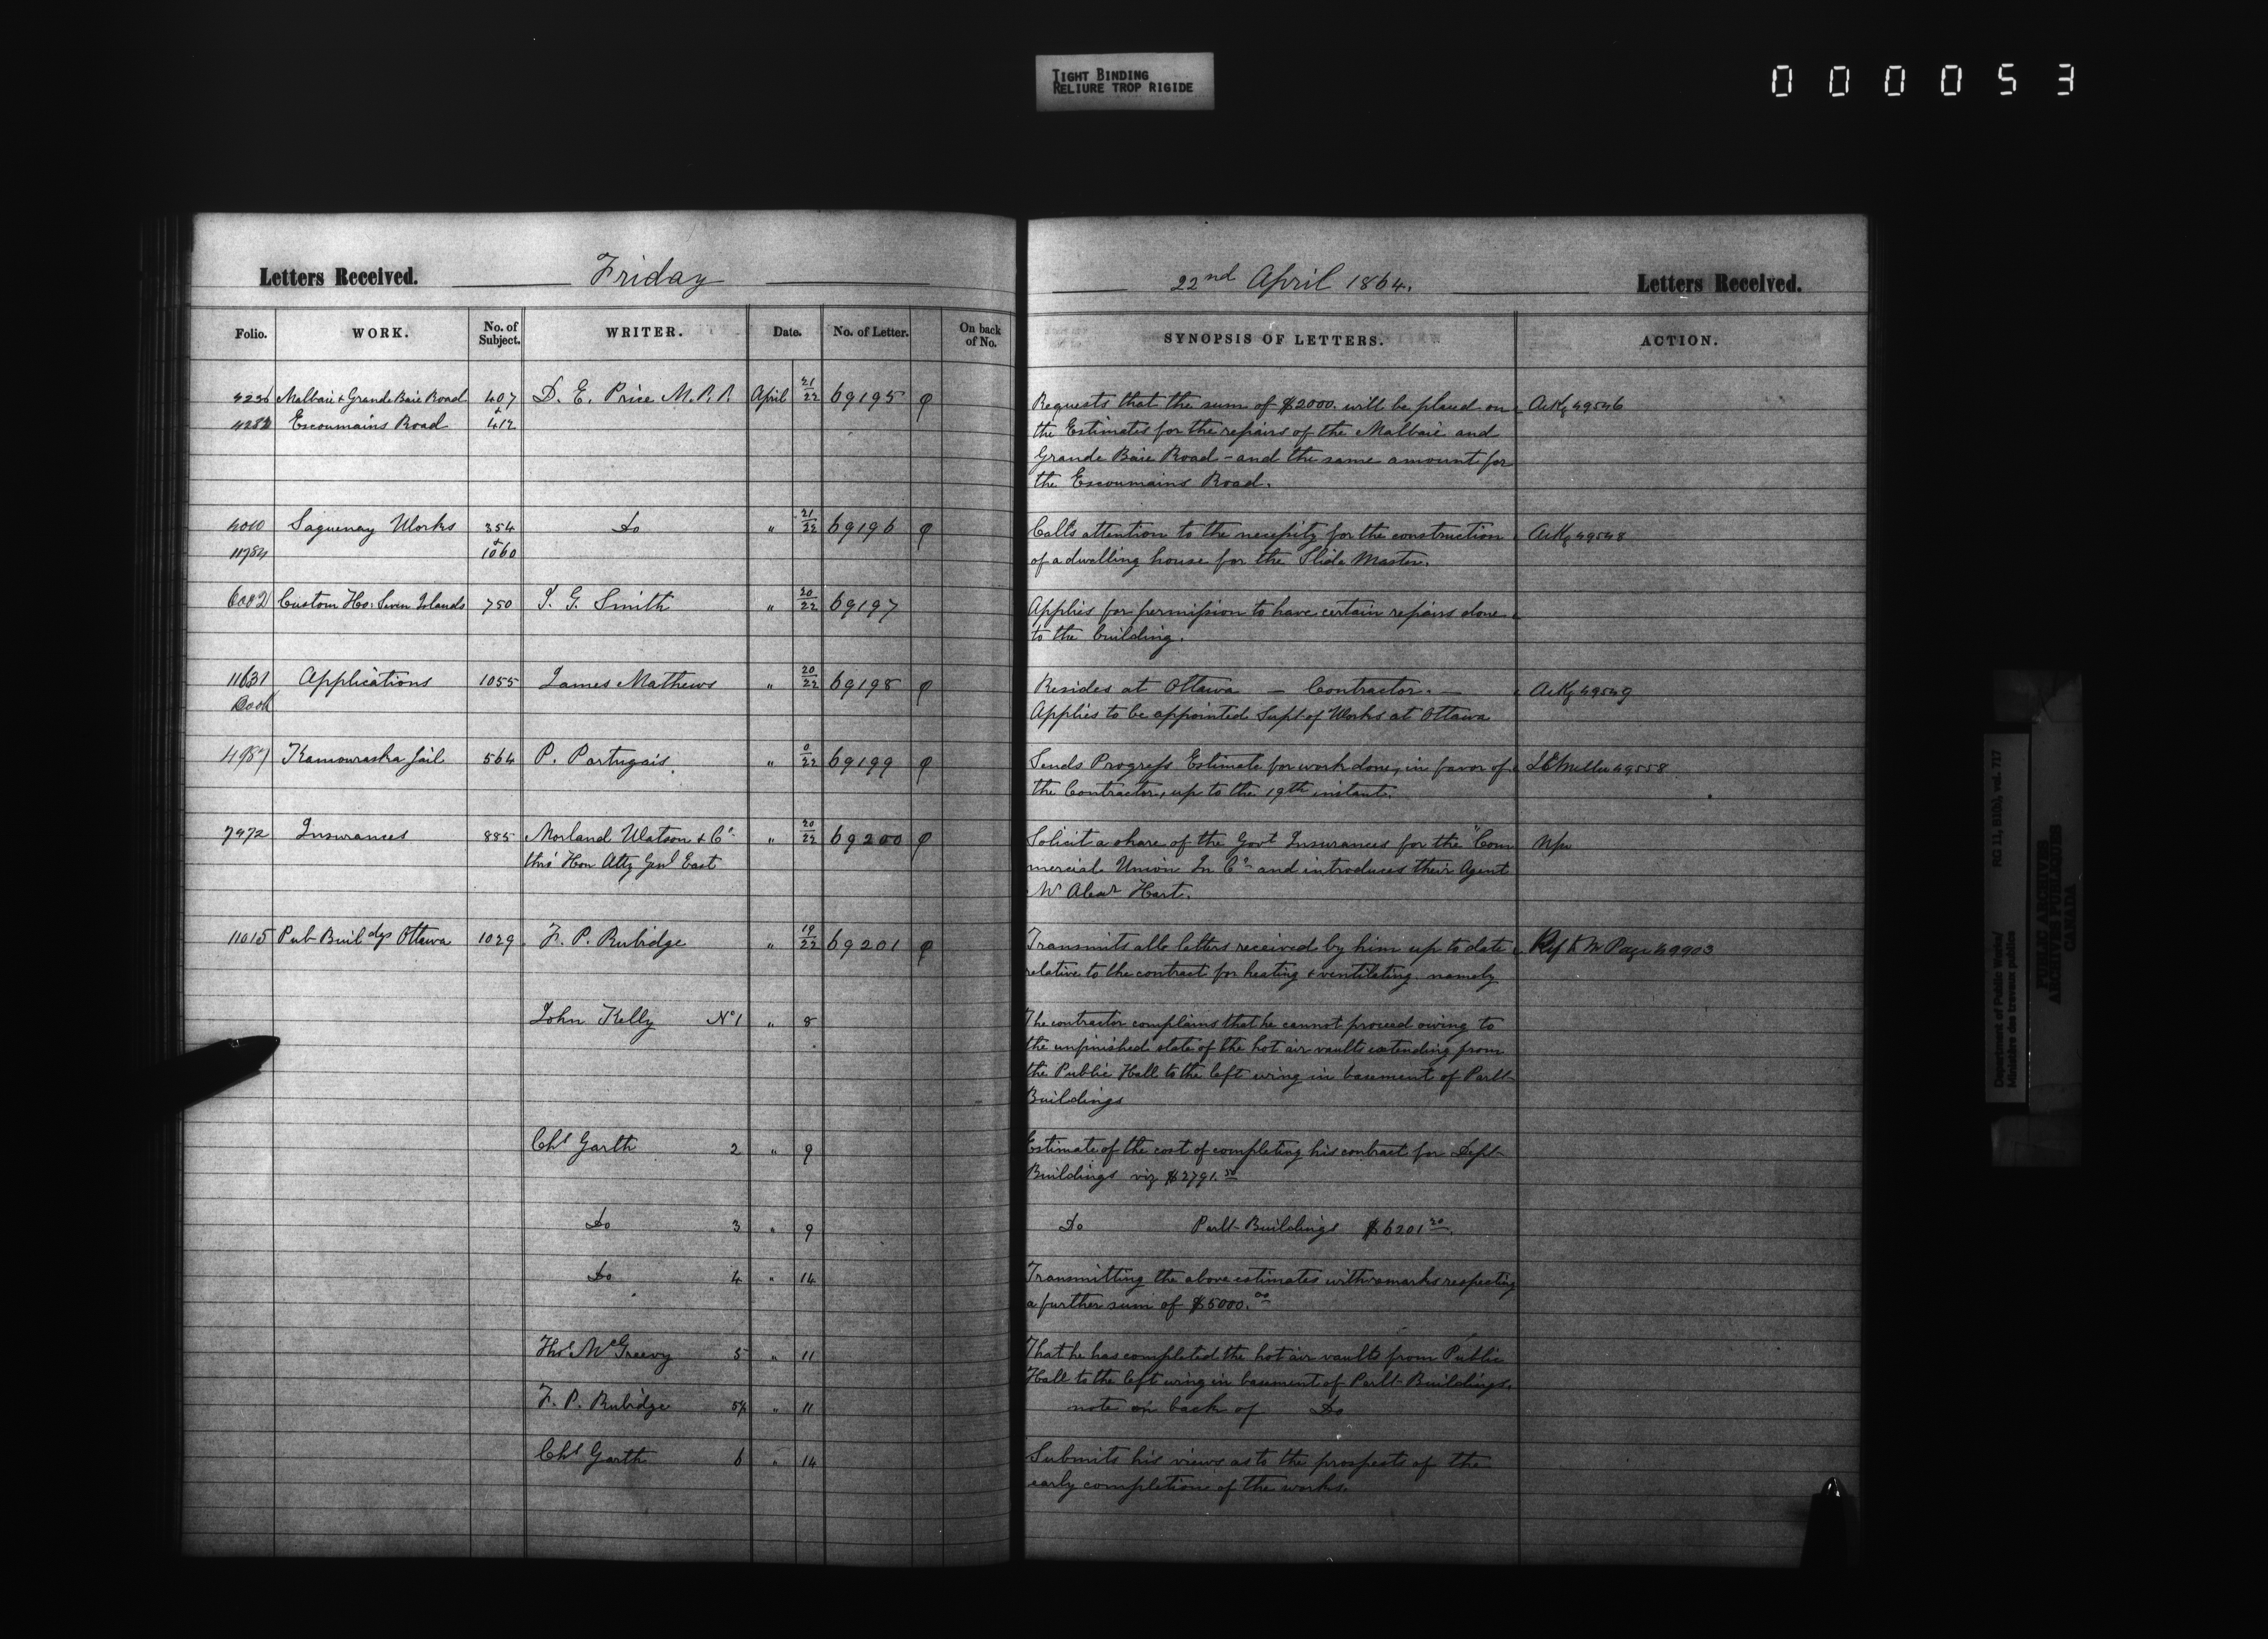 TIGHT BINDING
RELIURE TROP RIGIDE
000053
Letters Received. Friday
Folio. WORK. No. of Subject. WRITER. Date. No. of Letter. On back of No.
4236 Malbaie & Grande Baie Road 407 D. E. Price M.P.P. April 21/22 69195 φ
4282 Escoumains Road & 412
4010 Saguenay Works 354 Do " 21/22 69196 φ
11784 & 1060
6002 Custom Ho: Seven Islands 750 J. G. Smith " 20/22 69197
11631 Applications 1055 James Mathews " 20/22 69198 φ
Book
4987 Kamouraska Jail 564 P. Portugais " 0/22 69199 φ
7972 Insurances 885 Morland Watson & Co. " 20/22 69200 φ
thro' Hon Atty Genl East
11015 Pub Buildgs Ottawa 1029 F. P. Rubidge " 19/22 69201 φ
John Kelly No 1 " 8
Chs Garth 2 " 9
Do 3 " 9
Do 4 " 14
Thos McGreevy 5 " 11
F. P. Rubidge 5½ " 11
Chs Garth 6 " 14
22nd April 1864. Letters Received.
SYNOPSIS OF LETTERS. ACTION.
Requests that the sum of $2000. will be placed on Ackg 49546
the Estimates for the repairs of the Malbaie and
Grande Baie Road - and the same amount for
the Escoumains Road.
Calls attention to the necessity for the construction Ackg 49548
of a dwelling house for the Slide Master.
Applies for permission to have certain repairs done
to the building.
Resides at Ottawa — Contractor. — Ackg 49549
Applies to be appointed Supt of Works at Ottawa
Sends Progress Estimate for work done, in favor of 49558
the Contractor, up to the 19th instant.
Solicit a share of the Govt Insurances for the "Com
mercial Union In Co. and introduces their Agent
Mr Alexr Hart.
Transmits all letters received by him up to date Ref to Mr Page 49903
relative to the contract for heating & ventilating. namely
The contractor complains that he cannot proceed owing to
the unfinished state of the hot air vaults extending from
the Public Hall to the left wing in basement of Parlt
Buildings
Estimate of the cost of completing his contract for Dept
Buildings viz $2791.50
Do Parlt Buildings $6201.20
Transmitting the above estimates with remarks respecting
a further sum of $5000.00
That he has completed the hot air vaults from Public
Hall to the left wing in basement of Parlt Buildings.
note on back of Do
Submits his views as to the prospects of the
early completion of the works.
Department of Public Works/ RG 11, B1(b), vol. 717
Ministère des travaux publics
PUBLIC ARCHIVES
ARCHIVES PUBLIQUES
CANADA